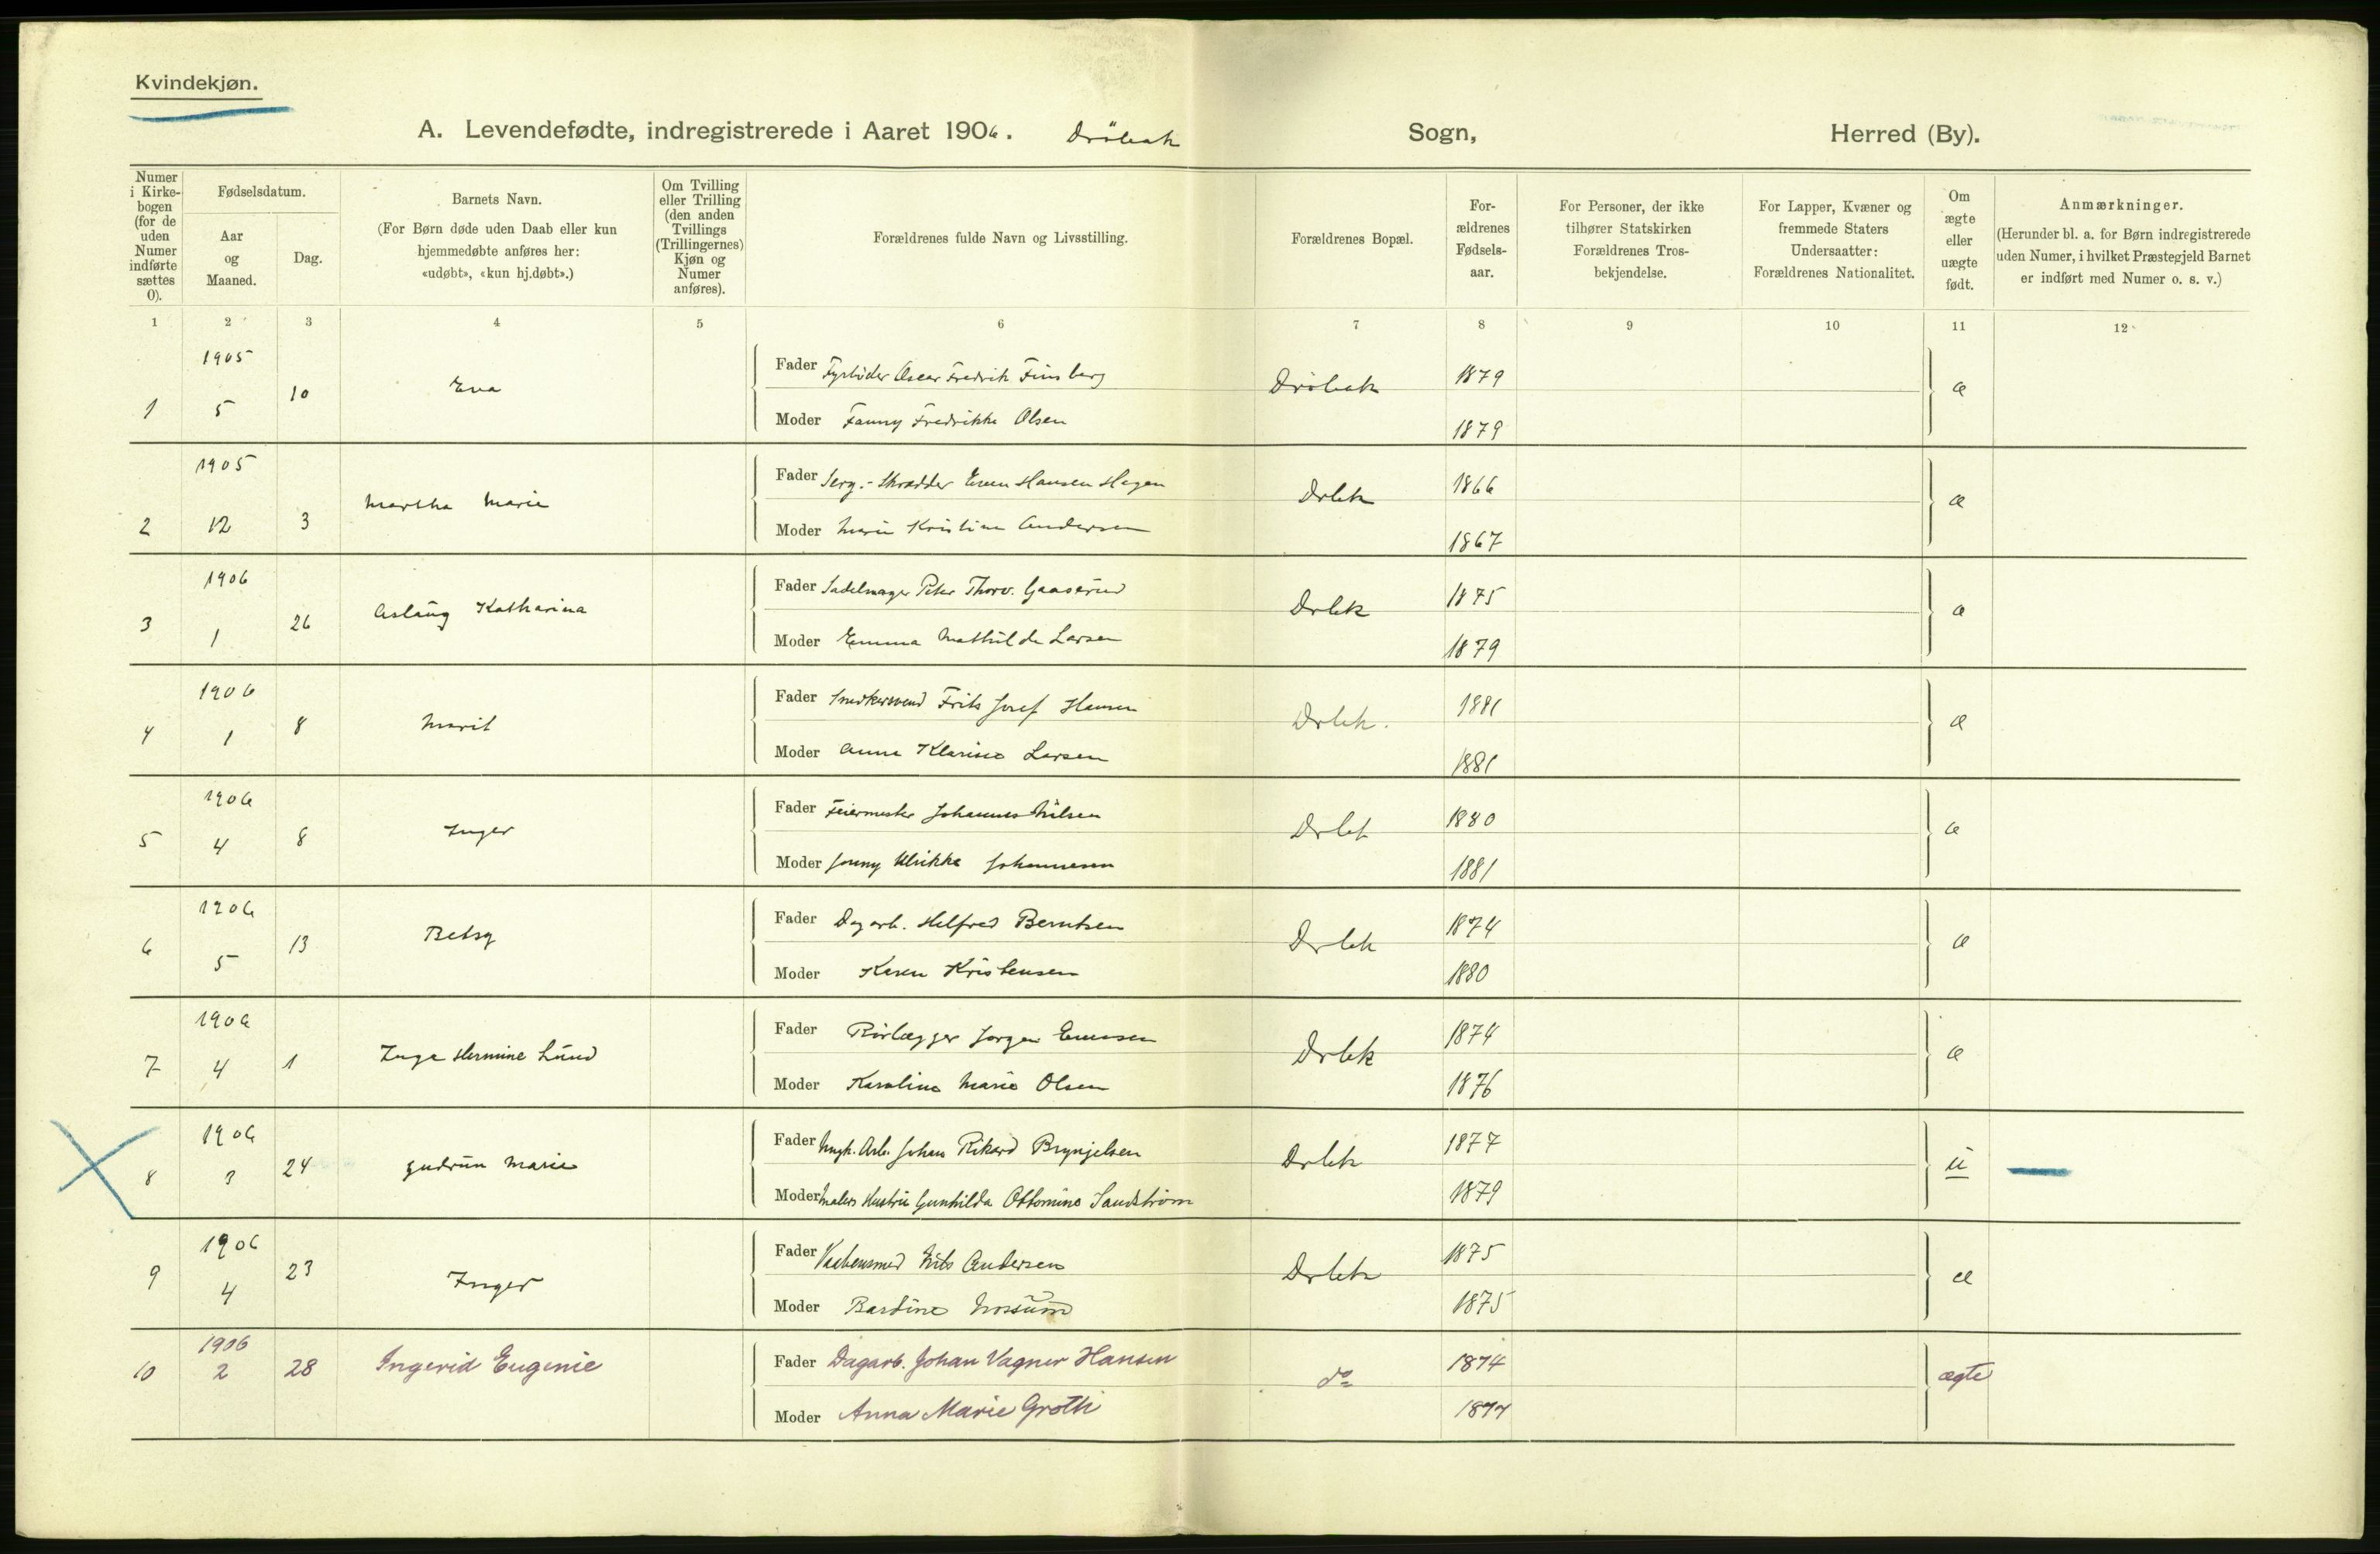 Kvindekjøn.
A. Levendefødte, indregistrerede i Aaret 1906. Dröbak Sogn, Herred (By).
Numer i Kirkebogen (for de uden Numer indførte sættes 0).
Fødselsdatum.
Aar og Maaned.
Dag.
Barnets Navn.
(For Børn døde uden Daab eller kun hjemmedøbte anføres her: «udøbt», «kun hj.døbt».)
Om Tvilling eller Trilling (den anden Tvillings (Trillingernes) Kjøn og Numer anføres).
Forældrenes fulde Navn og Livsstilling.
Forældrenes Bopæl.
Forældrenes Fødselsaar.
For Personer, der ikke tilhører Statskirken Forældrenes Trosbekjendelse.
For Lapper, Kvæner og fremmede Staters Undersaatter: Forældrenes Nationalitet.
Om ægte eller uægte født.
Anmærkninger.
(Herunder bl. a. for Børn indregistrerede uden Numer, i hvilket Præstegjeld Barnet er indført med Numer o. s. v.)
1 2 3 4 5 6 7 8 9 10 11 12
1 1905 5 10 Eva Fader Fyrbøder Oscar Fredrik Finsberg Dröbak 1879 æ
Moder Fanny Fredrikke Olsen 1879
2 1905 12 3 Martha Marie Fader Serg.- Skrædder Even Hansen Hagen Drbk 1866 æ
Moder Marie Kristine Andersen 1867
3 1906 1 26 Aslaug Katharina Fader Sadelmager Peter Thorv. Gaaserud Drbk 1875 æ
Moder Emma Mathilde Larsen 1879
4 1906 1 8 Marit Fader Snedkersvend Frits Josef Hansen Drbk. 1881 æ
Moder Anna Klarine Larsen 1881
5 1906 4 8 Inger Fader Feiermester Johannes Nilsen Drbk 1880 æ
Moder Jenny Ulrikke Johannesen 1881
6 1906 5 13 Betsy Fader Dagarb. Helfred Berntsen Drbk 1874 æ
Moder Karen Kristensen 1880
7 1906 4 1 Inga Hermine Lund Fader Rörlægger Jørgen Evensen Drbk 1874 æ
Moder Karoline Marie Olsen 1876
8 1906 3 24 Gudrun Marie Fader Ungk. Arb. Johan Rikard Brynjelsen Drbk 1877 u
Moder Malers Hustru Gunhilda Ottomine Sandström 1879
9 1906 4 23 Inger Fader Vaabensmed Nils Andersen Drbk 1875 æ
Moder Bardine Mossum 1875
10 1906 2 28 Ingerid Eugenie Fader Dagarb. Johan Vagner Hansen do 1874 ægte
Moder Anna Marie Groth 1877